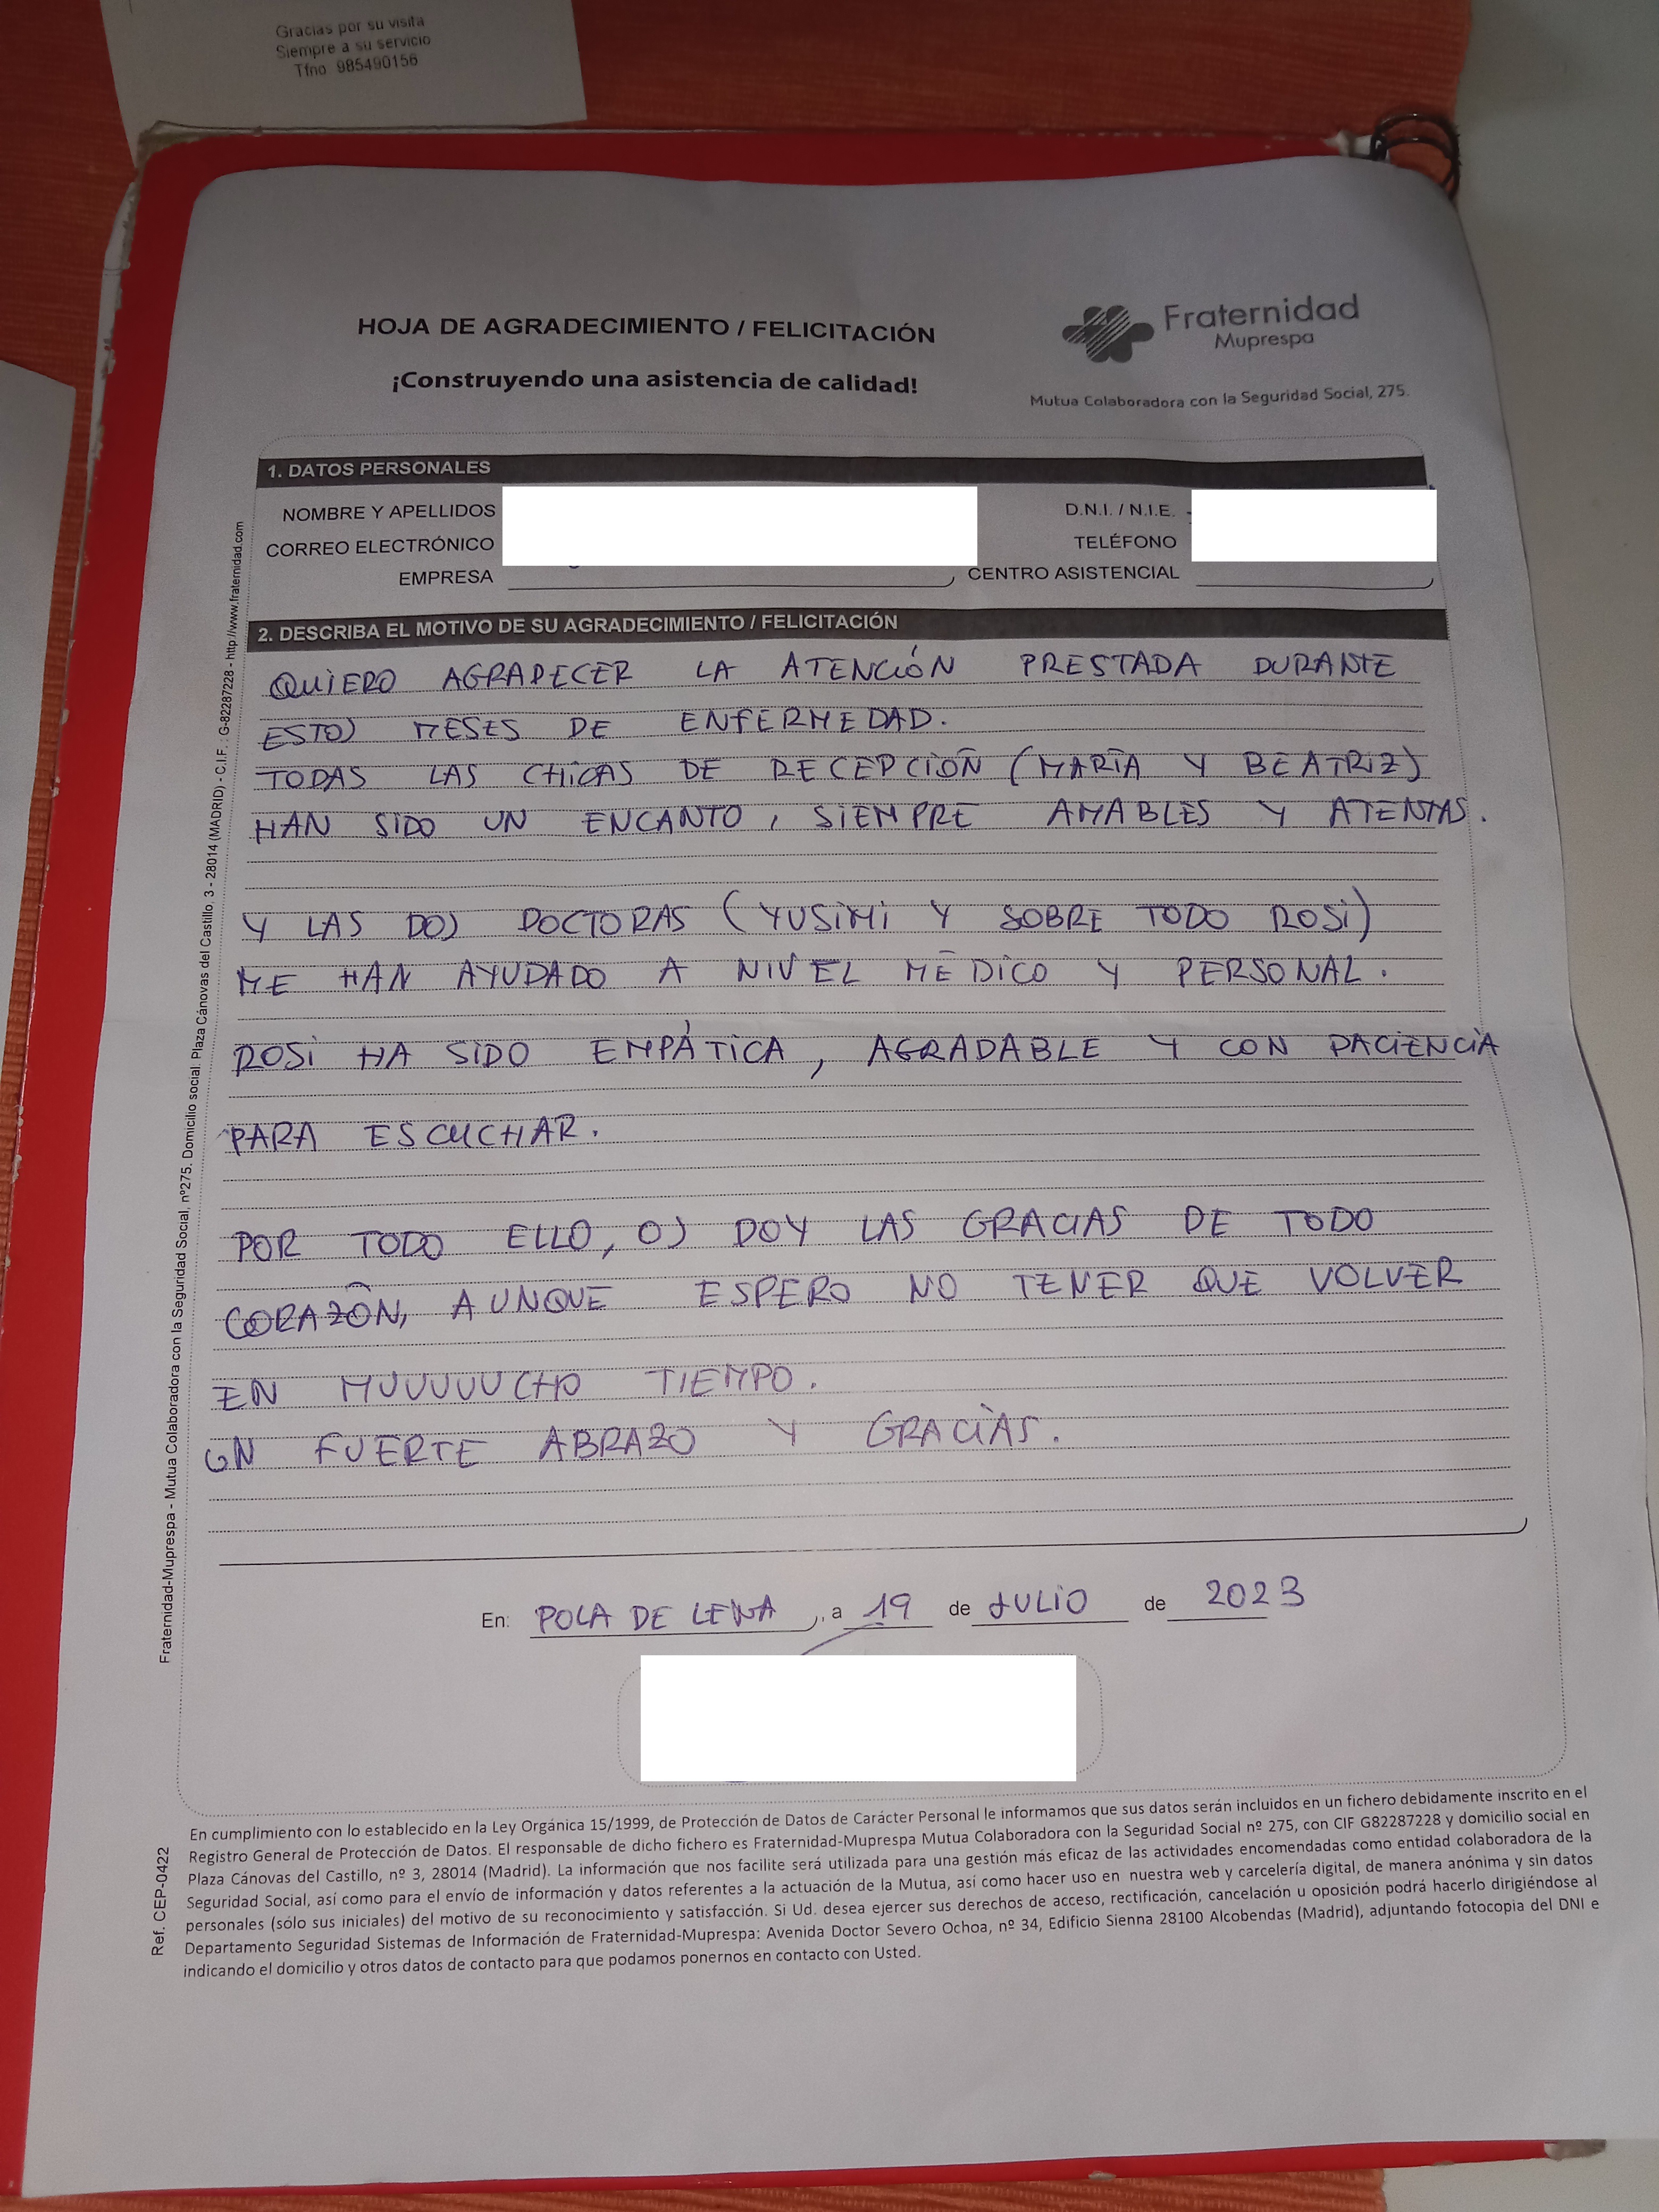 Gracias por su visita
Siempre a su servicio
Tfno 985490156
HOJA DE AGRADECIMIENTO / FELICITACIÓN
¡Construyendo una asistencia de calidad!
Fraternidad
Muprespa
Mutua Colaboradora con la Seguridad Social, 275.
1. DATOS PERSONALES
NOMBRE Y APELLIDOS
D.N.I. / N.I.E.
CORREO ELECTRÓNICO
TELÉFONO
EMPRESA
CENTRO ASISTENCIAL
2. DESCRIBA EL MOTIVO DE SU AGRADECIMIENTO / FELICITACIÓN
QUIERO AGRADECER LA ATENCIÓN PRESTADA DURANTE
ESTOS MESES DE ENFERMEDAD.
TODAS LAS CHICAS DE RECEPCIÓN (MARÍA Y BEATRIZ)
HAN SIDO UN ENCANTO, SIEMPRE AMABLES Y ATENTAS.
Y LAS DOS DOCTORAS (YUSIMI Y SOBRE TODO ROSI)
ME HAN AYUDADO A NIVEL MÉDICO Y PERSONAL.
ROSI HA SIDO EMPÁTICA, AGRADABLE Y CON PACIENCIA
PARA ESCUCHAR.
POR TODO ELLO, OS DOY LAS GRACIAS DE TODO
CORAZÓN, AUNQUE ESPERO NO TENER QUE VOLVER
EN MUUUUUCHO TIEMPO.
UN FUERTE ABRAZO Y GRACIAS.
En: POLA DE LENA, a 19 de JULIO de 2023
En cumplimiento con lo establecido en la Ley Orgánica 15/1999, de Protección de Datos de Carácter Personal le informamos que sus datos serán incluidos en un fichero debidamente inscrito en el
Registro General de Protección de Datos. El responsable de dicho fichero es Fraternidad-Muprespa Mutua Colaboradora con la Seguridad Social nº 275, con CIF G82287228 y domicilio social en
Plaza Cánovas del Castillo, nº 3, 28014 (Madrid). La información que nos facilite será utilizada para una gestión más eficaz de las actividades encomendadas como entidad colaboradora de la
Seguridad Social, así como para el envío de información y datos referentes a la actuación de la Mutua, así como hacer uso en nuestra web y carcelería digital, de manera anónima y sin datos
personales (sólo sus iniciales) del motivo de su reconocimiento y satisfacción. Si Ud. desea ejercer sus derechos de acceso, rectificación, cancelación u oposición podrá hacerlo dirigiéndose al
Departamento Seguridad Sistemas de Información de Fraternidad-Muprespa: Avenida Doctor Severo Ochoa, nº 34, Edificio Sienna 28100 Alcobendas (Madrid), adjuntando fotocopia del DNI e
indicando el domicilio y otros datos de contacto para que podamos ponernos en contacto con Usted.
Fraternidad-Muprespa - Mutua Colaboradora con la Seguridad Social, nº275. Domicilio social: Plaza Cánovas del Castillo, 3 - 28014 (MADRID) - C.I.F. : G-82287228 - http://www.fraternidad.com
Ref. CEP-0422